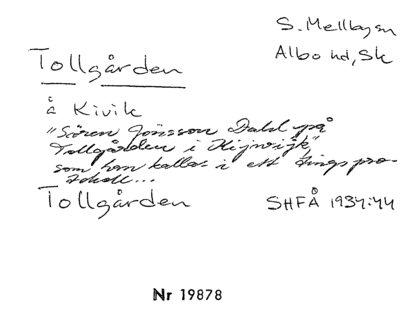 S. Mellbysn
Albo hd, Sk
Tollgården
å Kivik
"Sören Jönsson Dahl på
Tollgården i Kijwijk",
som han kallas i ett tings pro-
tokoll...
Tollgården
SHFÅ 1934:44
Nr 19878